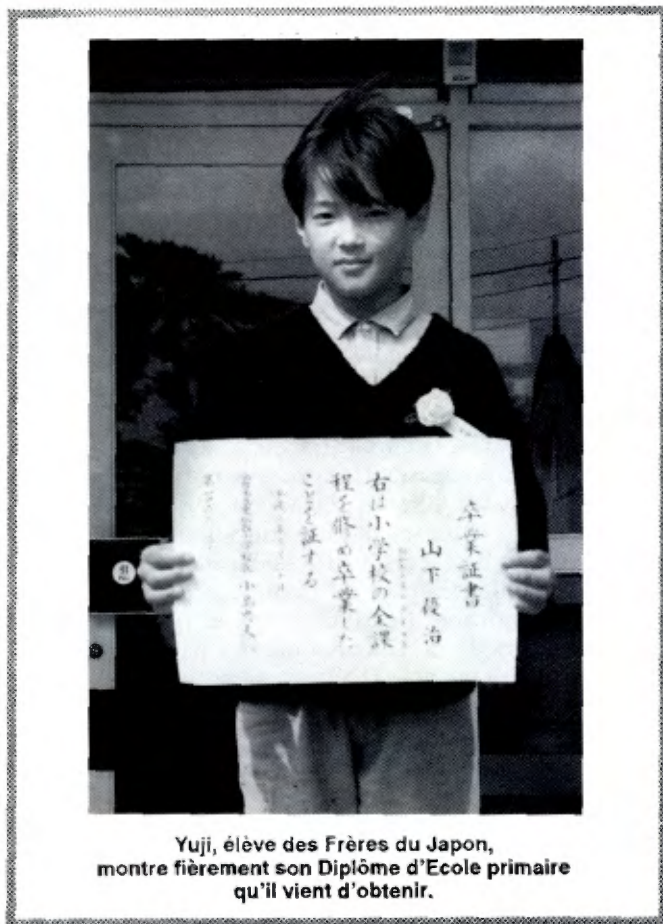 卒業証書
山下優治
右は小学校の全課
程を修め卒業した
ことを証する
Yuji, élève des Frères du Japon,
montre fièrement son Diplôme d'Ecole primaire
qu'il vient d'obtenir.